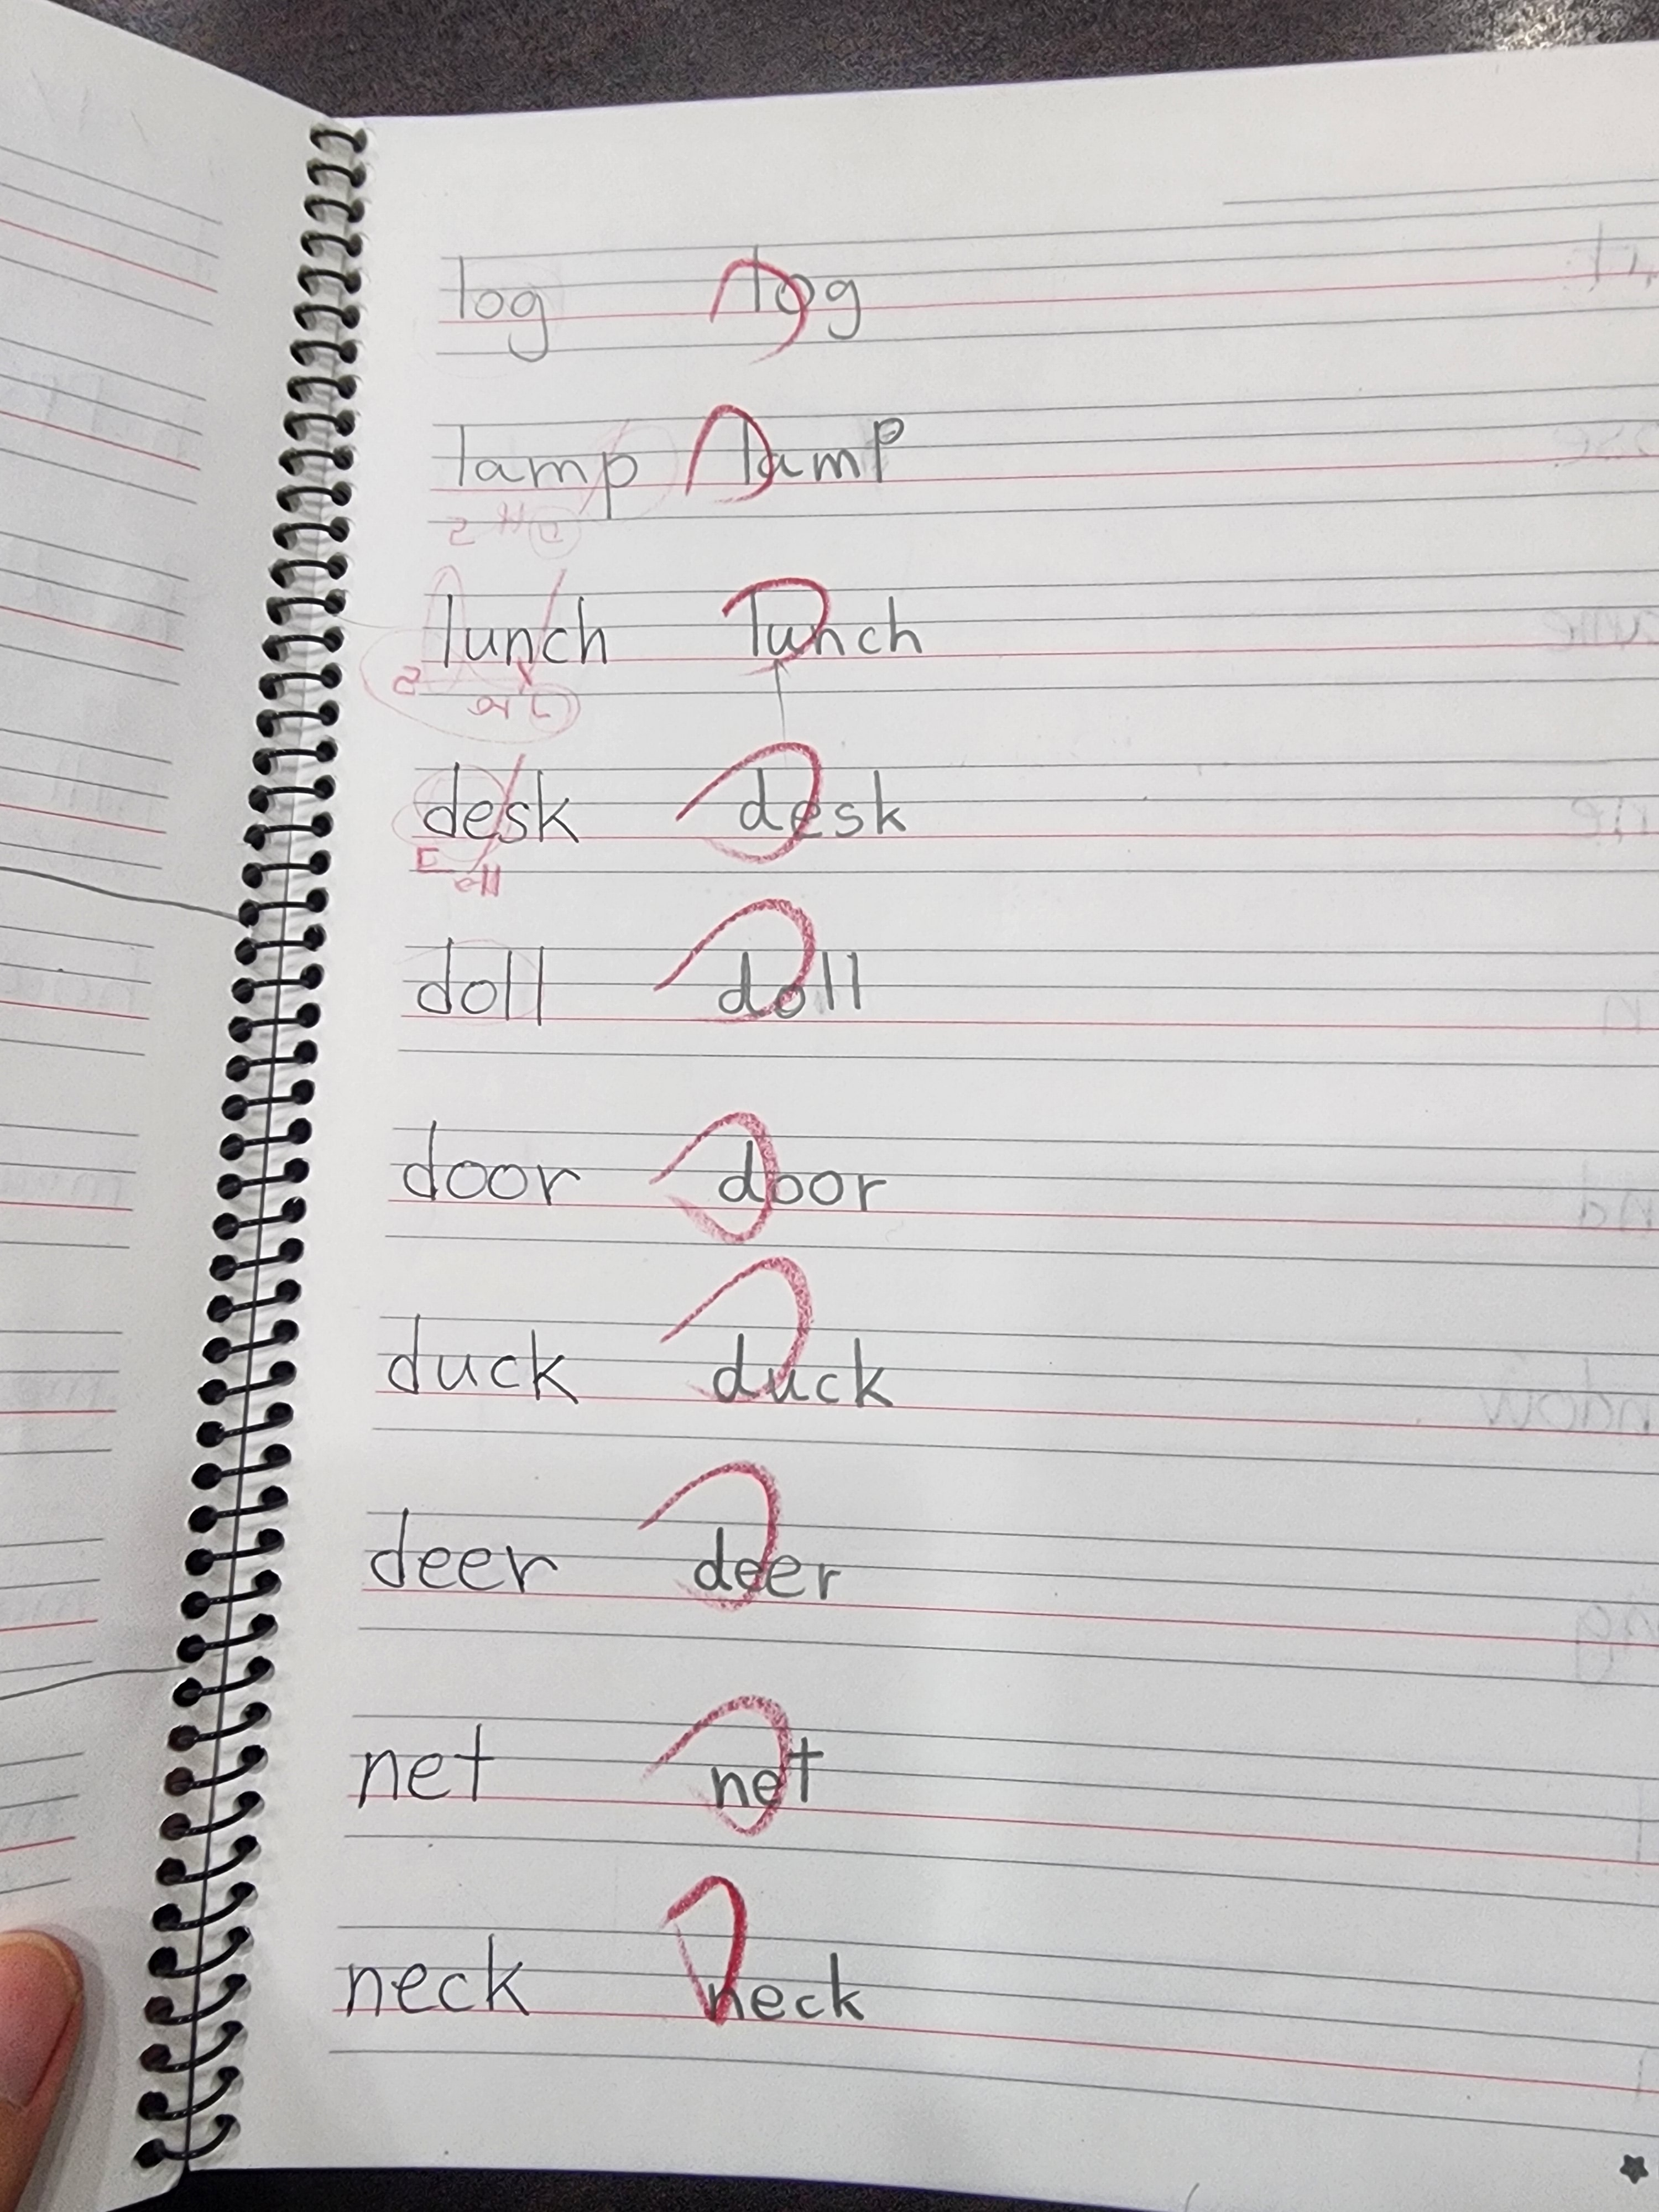 log log
lamp lamp
lunch lunch
desk desk
doll doll
door door
duck duck
deer deer
net net
neck neck